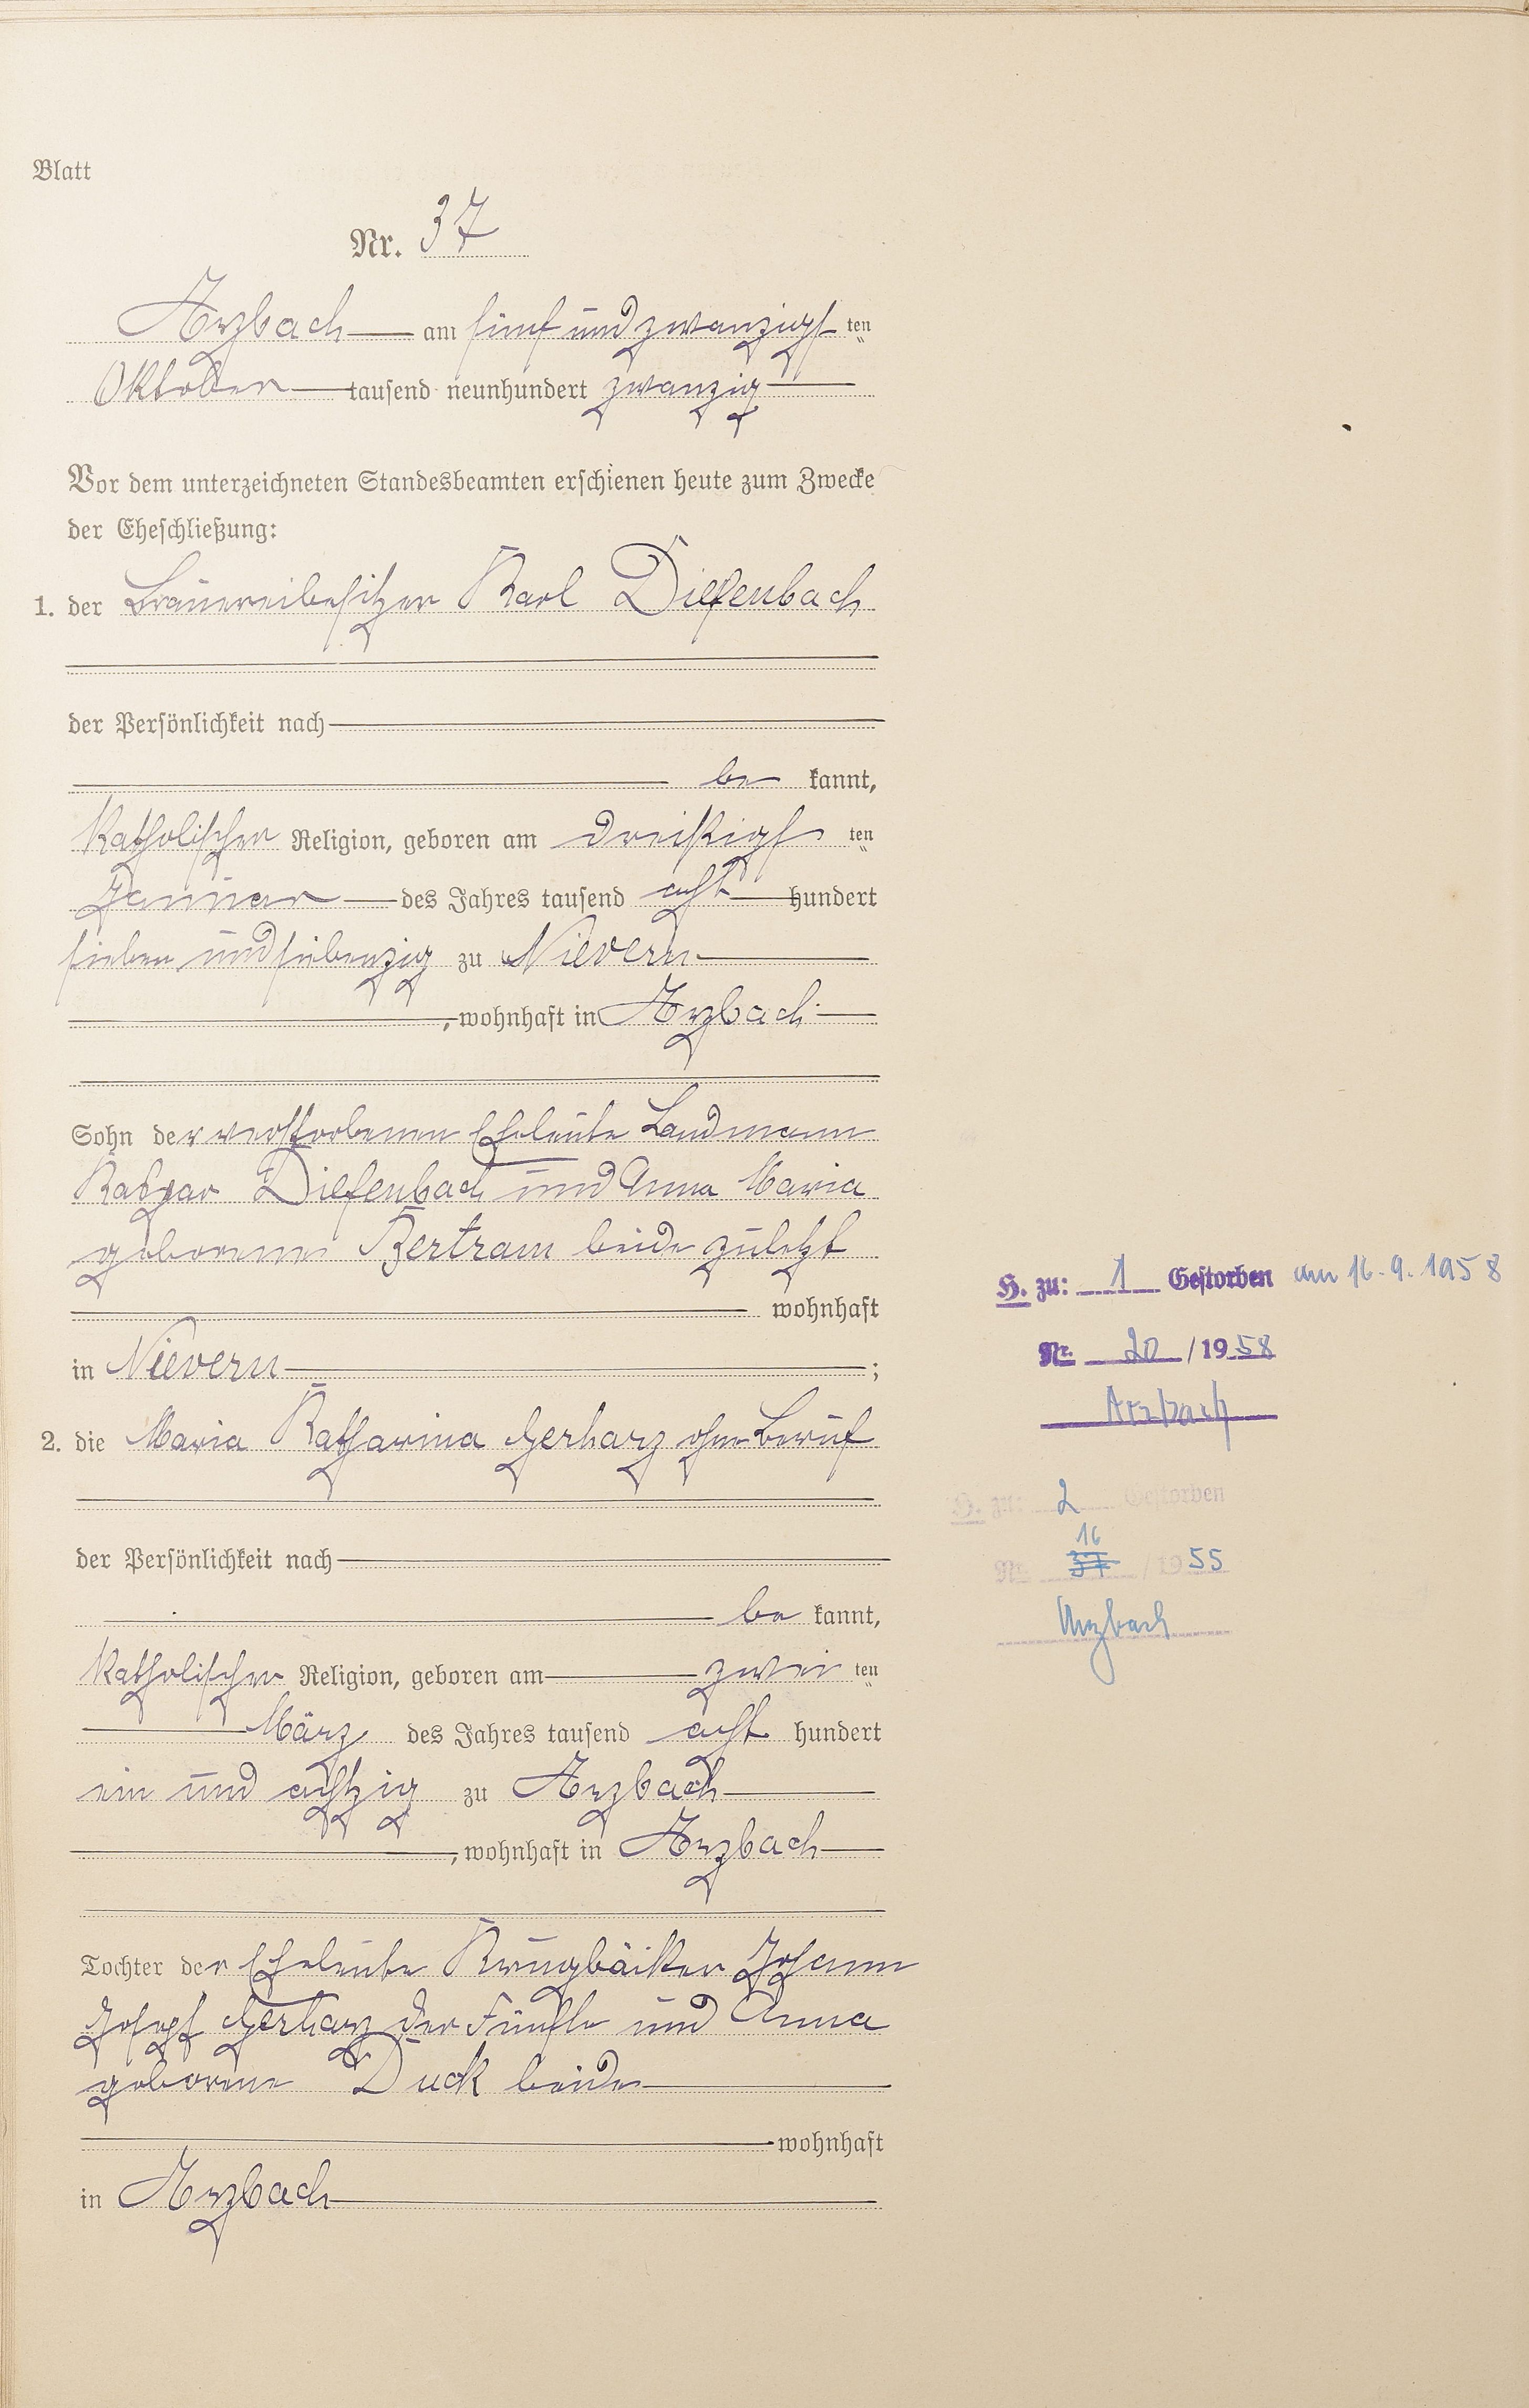 Blatt
Nr. 37
Arzbach am fünf und zwanzigsten
Oktober tausend neunhundert zwanzig
Vor dem unterzeichneten Standesbeamten erschienen heute zum Zwecke
der Eheschließung:
1. der Brauereibesitzer Karl Diefenbach
der Persönlichkeit nach
be kannt,
katholischer Religion, geboren am dreißigsten
Januar des Jahres tausend acht hundert
sieben und siebenzig zu Nievern
, wohnhaft in Arzbach
Sohn der verstorbenen Eheleute Landmann
Kaspar Diefenbach und Anna Maria
geborene Bertram beide zuletzt
wohnhaft
in Nievern ;
2. die Maria Katharina Gerharz ohne Beruf
der Persönlichkeit nach
be kannt,
katholischer Religion, geboren am zweiten
März des Jahres tausend acht hundert
ein und achtzig zu Arzbach
, wohnhaft in Arzbach
Tochter der Eheleute Krugbäcker Johann
Josef Gerharz der Fünfte und Anna
geborene Duck beide
wohnhaft
in Arzbach
H. zu: 1 Gestorben am 16.9.1958
Nr. 20 /1958
Arzbach
H. zu: 2 Gestorben
16
Nr. 37 /1955
Arzbach